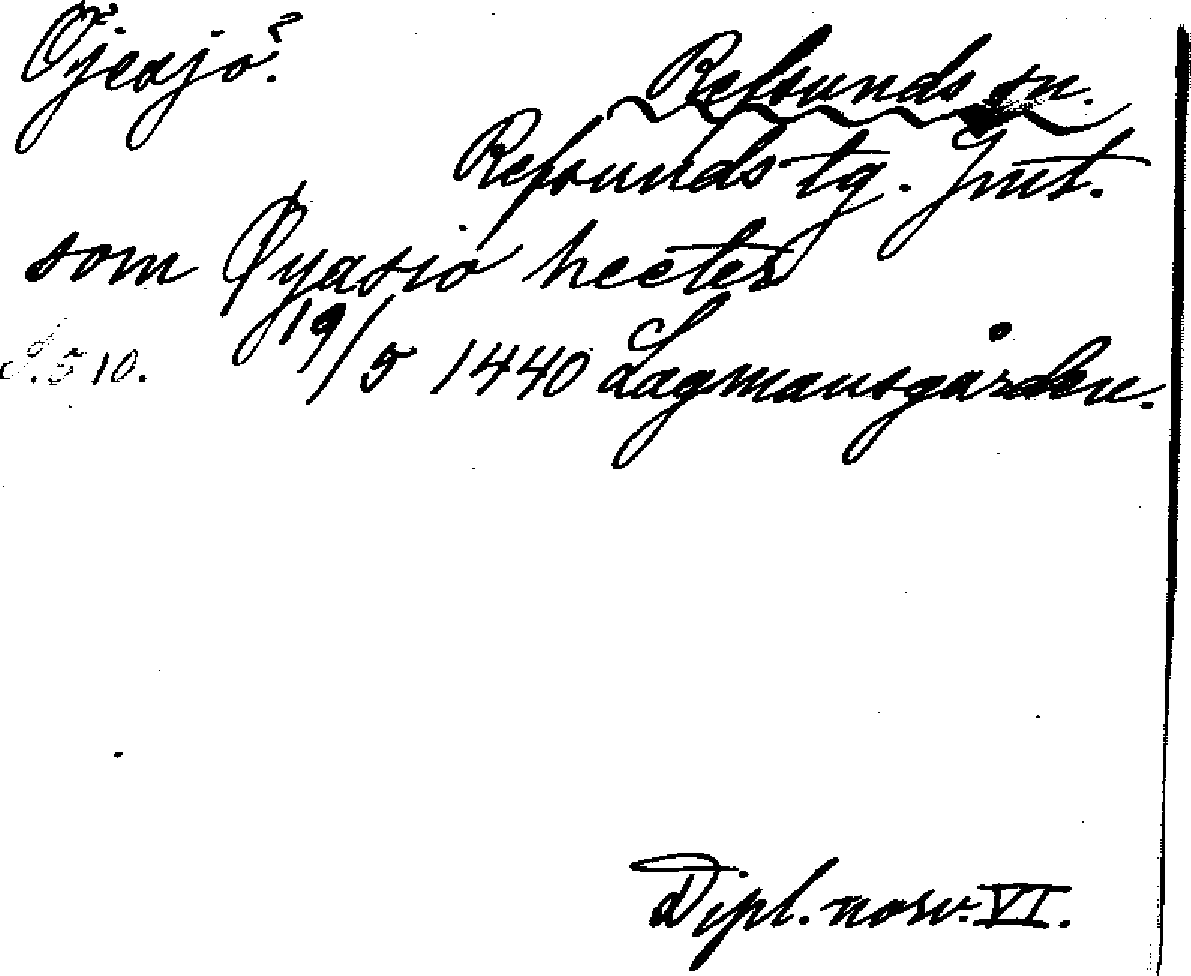 Öjesjö?
Refsunds sn.
Refsunds tg. Jmt.
som Øyasio heeter
S. 510. 19/5 1440 Lagmansgården.
Dipl. norv. VI.